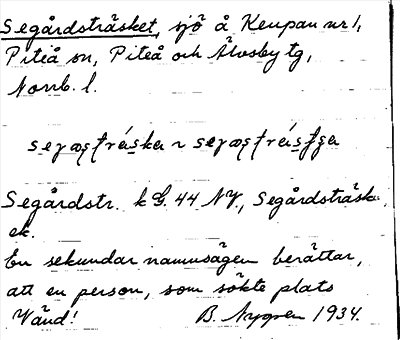 Segårdsträsket, sjö å Keupan nr 1,
Piteå sn, Piteå och Älvsby tg,
Norrb. l.
Segårdstr. k G. 44 NV, Segårdsträsk
ek.
En sekundär namnsägen berättar,
att en person, som sökte plats
Vänd! B. Nygren 1934.